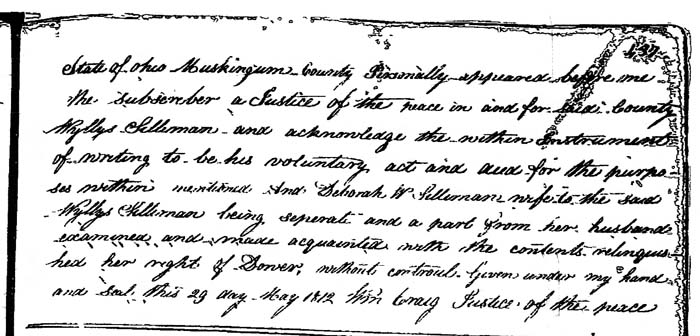 State of Ohio Muskingum County Personally appeared before me
the Subscriber a Justice of the peace in and for said County
Wyllys Silliman and acknowledge the within Instrument
of writing to be his voluntary act and deed for the purpo-
ses within mentioned And Deborah W Silliman wife to the said
Wyllys Silliman being seperate and a part from her husband
examined and made acquainted with the contents relinquis-
hed her right of Dower, without controul. Given under my hand
and Seal this 29 day May 1812 Craig Justice of the peace